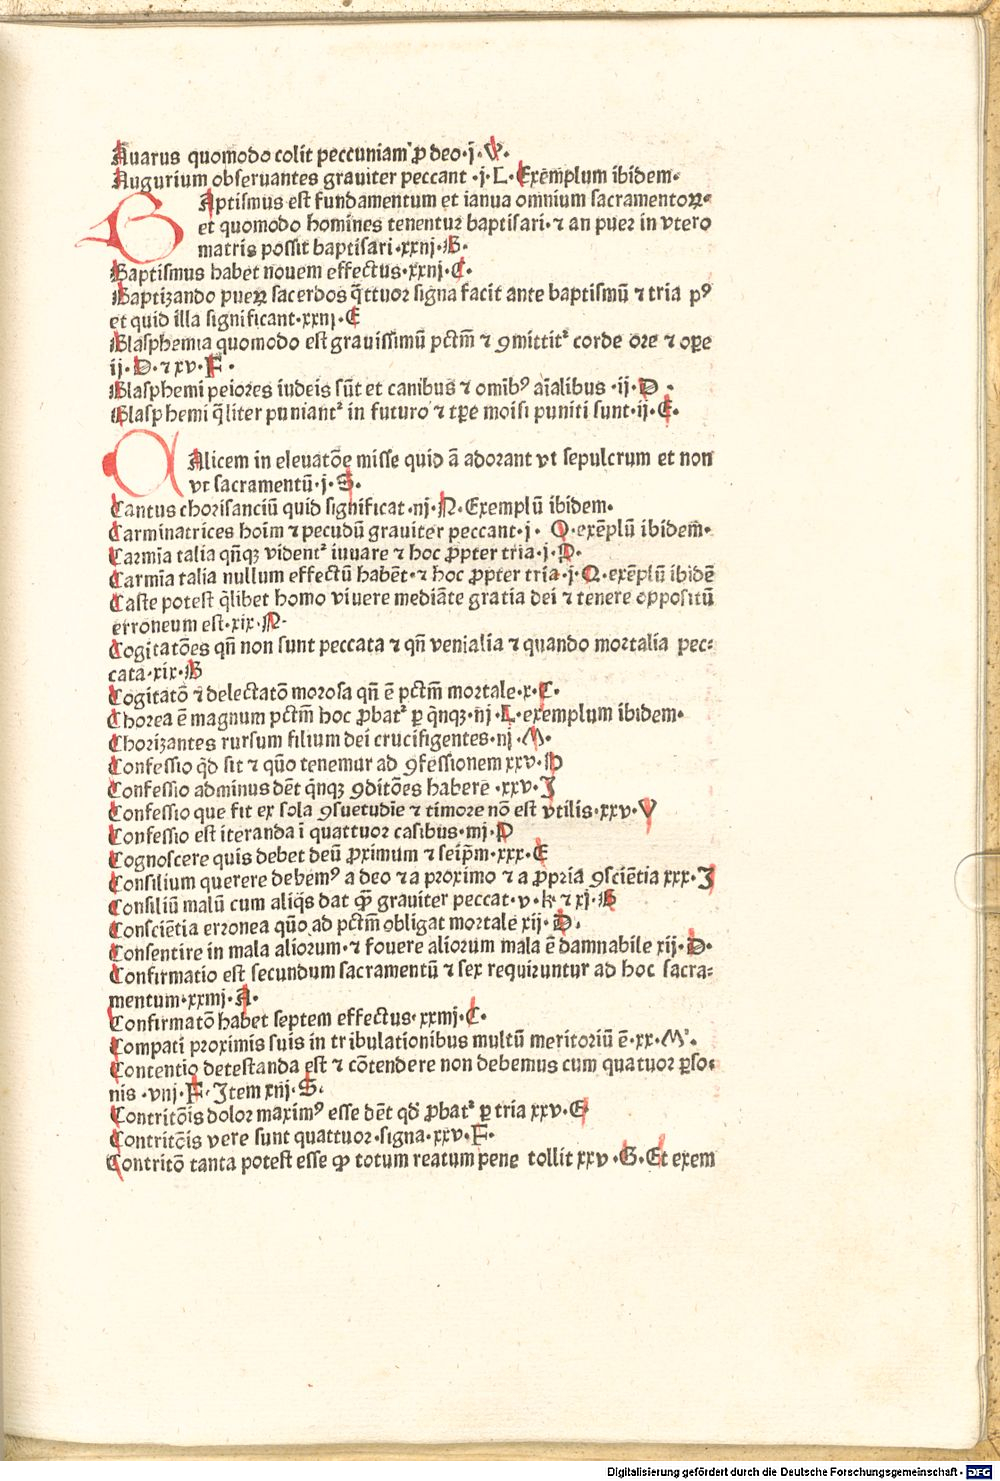 Auarus quomodo colit peccuniam ꝓ deo·j·V·
Augurium obseruantes grauiter peccant ·j·L·Exēmplum ibidem·
BAptismus est fundamentum et ianua omnium sacramentoꝝ·
et quomodo homines tenentur baptisari·⁊ an puer in vtero
matris possit baptisari·xxnj·B·
Baptismus habet nouem effectus·xxnj·C·
Baptizando pueꝝ sacerdos q̄ttuor signa facit ante baptismū ⁊ tria pꝰ
et quid illa significant·xxnj·E
Blasphemia quomodo est grauissimū pctm̄ ⁊ ꝯmittitᷣ corde ore ⁊ oꝑe
ij·D·⁊ xv·F·
Blasphemi peiores iudeis sūt et canibus ⁊ omībꝰ aīalibus ·ij·D·
Blasphemi q̄liter puniantᷣ in futuro ⁊ tꝑe moisi puniti sunt·ij·E·
CAlicem in eleuatōe misse quid ā adorant vt sepulcrum et non
vt sacramentū·j·S·
Cantus chorisanciū quid significat·nj·N·Exemplū ibidem·
Carminatrices hoīm ⁊ pecudū grauiter peccant·j· O·exēplū ibidem·
Carmīa talia qn̄qꝫ videntᷣ iuuare ⁊ hoc ꝓpter tria·j·P·
Carmīa talia nullum effectū habēt·⁊ hoc ꝓpter tria·j·Q·exēplū ibidē
Caste potest q̄libet homo viuere mediāte gratia dei ⁊ tenere oppositū
erroneum est·xix·N·
Cogitatōes qn̄ non sunt peccata ⁊ qn̄ venialia ⁊ quando mortalia pec⸗
cata·xix·B
Cogitatō ⁊ delectatō morosa qn̄ ē pctm̄ mortale·x·C·
Chorea ē magnum pctm̄ hoc ꝓbatᷣ ꝑ q̄nqꝫ·nj·L·exemplum ibidem·
Chorizantes rursum filium dei crucifigentes·nj·M·
Confessio qd̄ sit ⁊ quō tenemur ad ꝯfessionem xxv·H
Confessio adminus dēt q̄nqꝫ ꝯditōes habere ·xxv·I
Confessio que fit ex sola ꝯsuetudīe ⁊ timore nō est vtilis·xxv·V
Confessio est iteranda ī quattuor casibus·mj·P
Cognoscere quis debet deū ꝓximum ⁊ seip̄m·xxx·E
Consilium querere debemꝰ a deo ⁊ a proximo ⁊ a ꝓpria ꝯsciētia xxx·I
Consiliū malū cum aliq̄s dat ꝙ̄ grauiter peccat·v·k·⁊ xj·B
Consciētia erronea quō ad pctm̄ obligat mortale xij·D·
Consentire in mala aliorum·⁊ fouere aliorum mala ē damnabile xij·D·
Confirmatio est secundum sacramentū ⁊ sex requiruntur ad hoc sacra⸗
mentum·xxmj·A·
Confirmatō habet septem effectus·xxmj·C·
Compati proximis suis in tribulationibus multū meritoriū ē·xx·M·
Contentio detestanda est ⁊ cōtendere non debemus cum quatuor ꝑso⸗
nis ·vnj·F·Item xnj·S·
Contritōis dolor maximꝰ esse dēt qd̄ ꝓbatᷣ ꝑ tria xxv·E
Contritōis vere sunt quattuor·signa·xxv·F·
Contritō tanta potest esse ꝙ totum reatum pene tollit xxv·G·Et exem
Digitalisierung gefördert durch die Deutsche Forschungsgemeinschaft - DFG